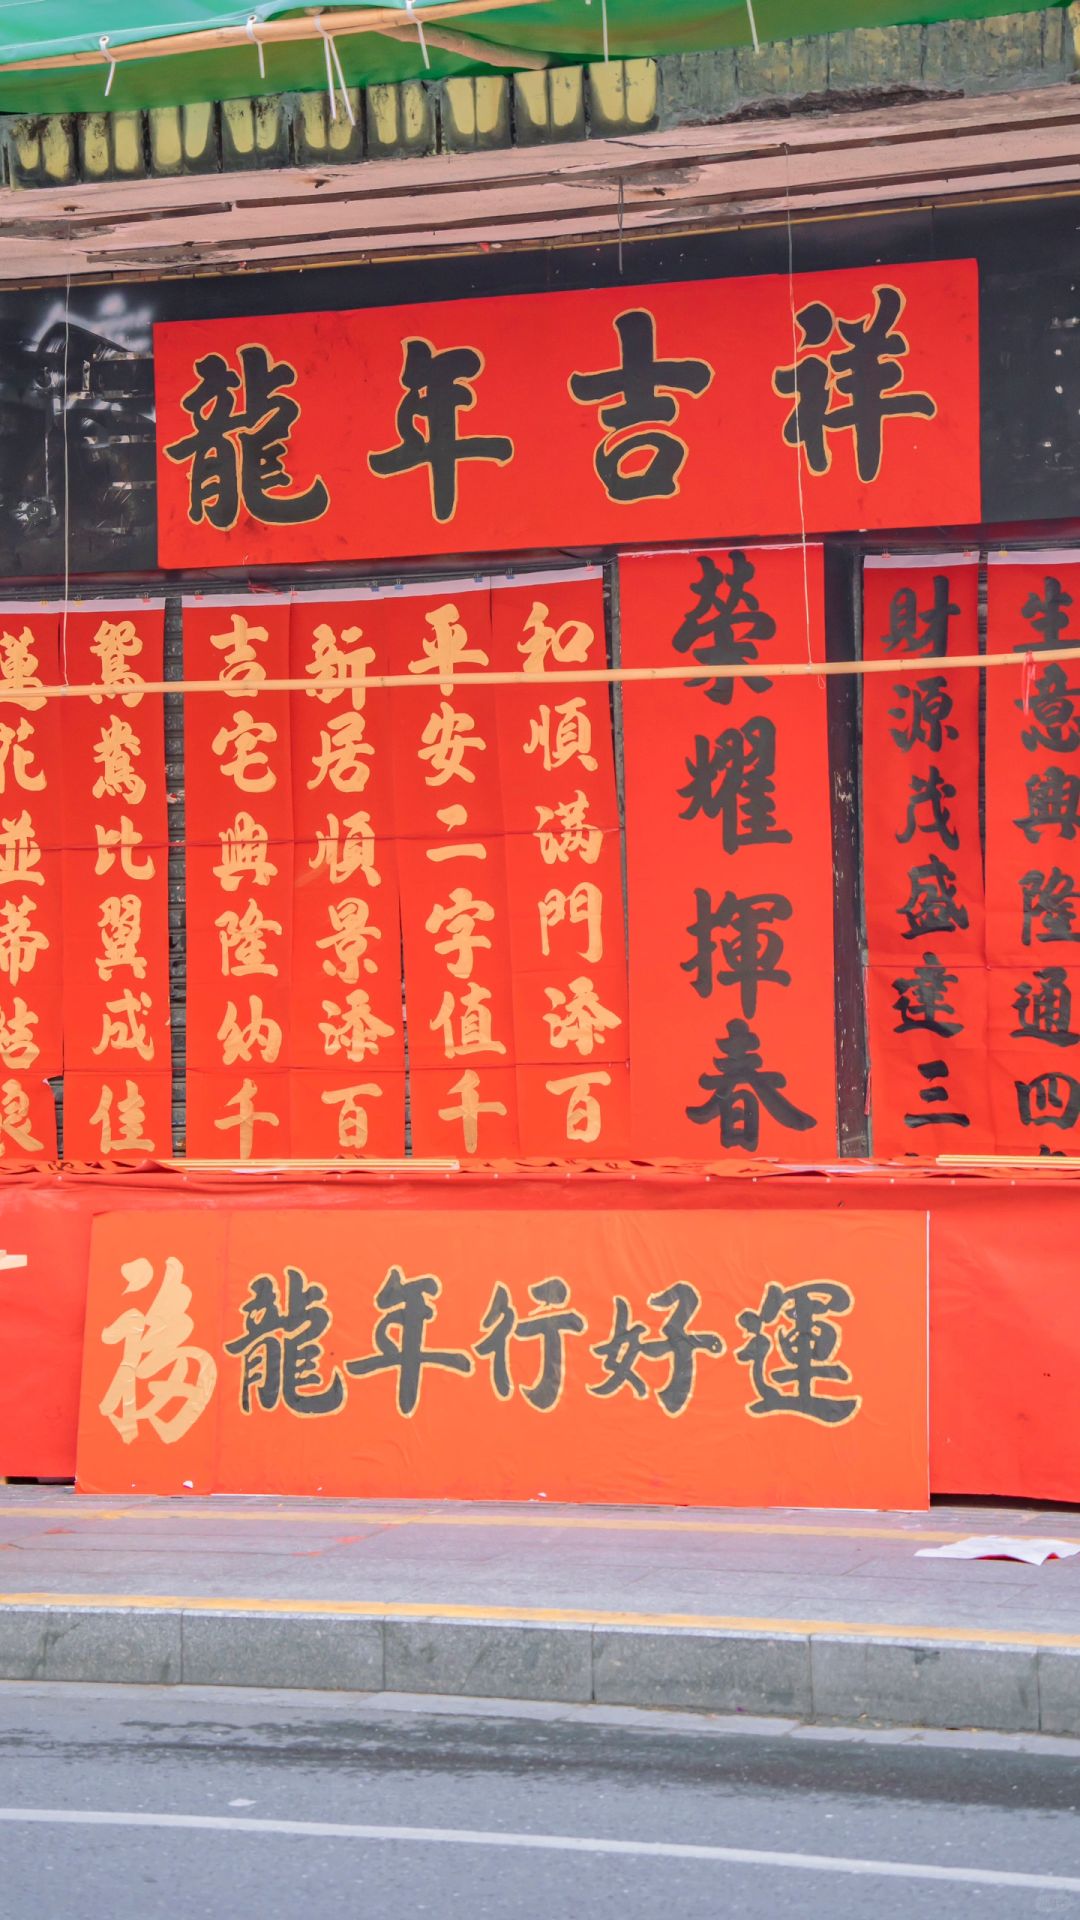 龍年吉祥
蓮花並蒂結良
鴛鴦比翼成佳
吉宅興隆納千
新居順景添百
平安二字值千
和順满門添百
榮耀揮春
財源茂盛達三
生意興隆通四
福龍年行好運